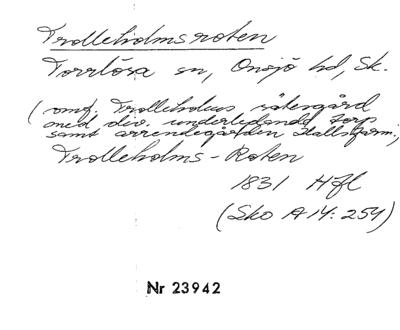 Trolleholmsroten
Torrlösa sn, Onsjö hd, Sk.
(omf. Trolleholms sätesgård
med div. underlydande torp
samt arrendegården Hallsfarm.)
Trolleholms-Roten
1831 Hfl
(Sko A 14:254)
Nr 23942